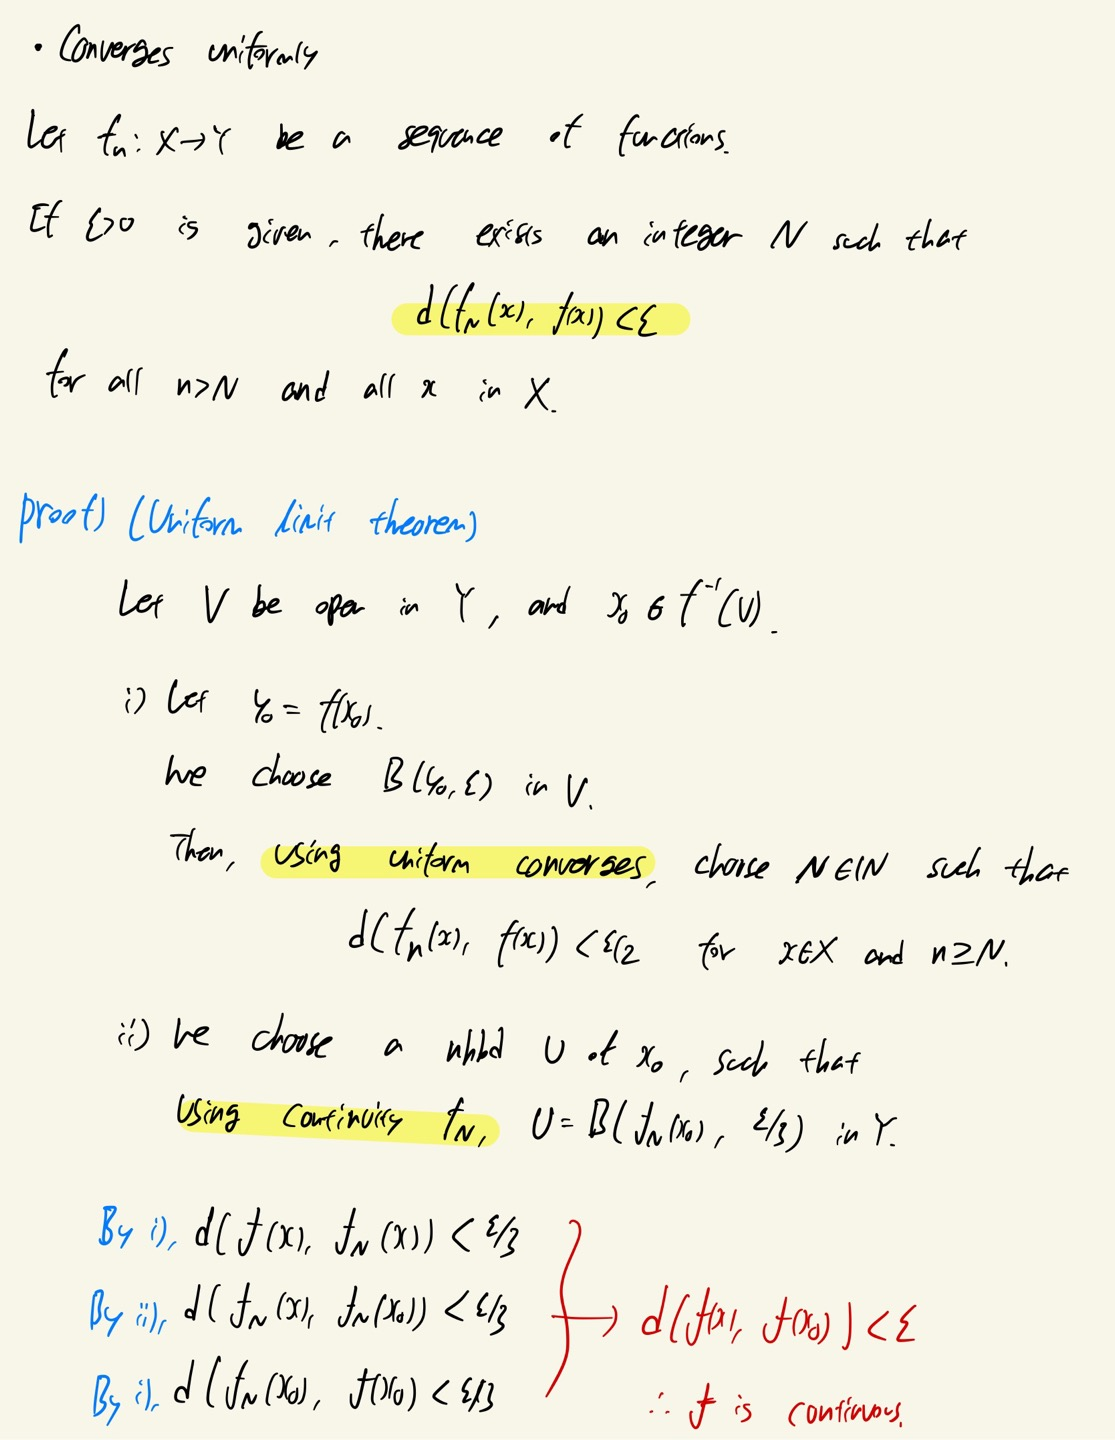 • Converges uniformly
Let fn : X→Y be a sequence of functions.
If ε>0 is given, there exists an integer N such that
d(fN(x), f(x)) <ε
for all n>N and all x in X.
proof) (Uniform limit theorem)
Let V be open in Y, and x₀ ∈ f⁻¹(V).
i) Let y₀ = f(x₀).
We choose B(y₀, ε) in V.
Then, using uniform converges, choose N∈ℕ such that
d(fn(x), f(x)) < ε/2 for x∈X and n≥N.
ii) We choose a nhbd U of x₀, such that
using continuity fN, U = B(fN(x₀), ε/3) in Y.
By i), d(f(x), fN(x)) < ε/3
By ii), d(fN(x), fN(x₀)) < ε/3
By i), d(fN(x₀), f(x₀) < ε/3
→ d(f(x), f(x₀)) < ε
∴ f is continuous.